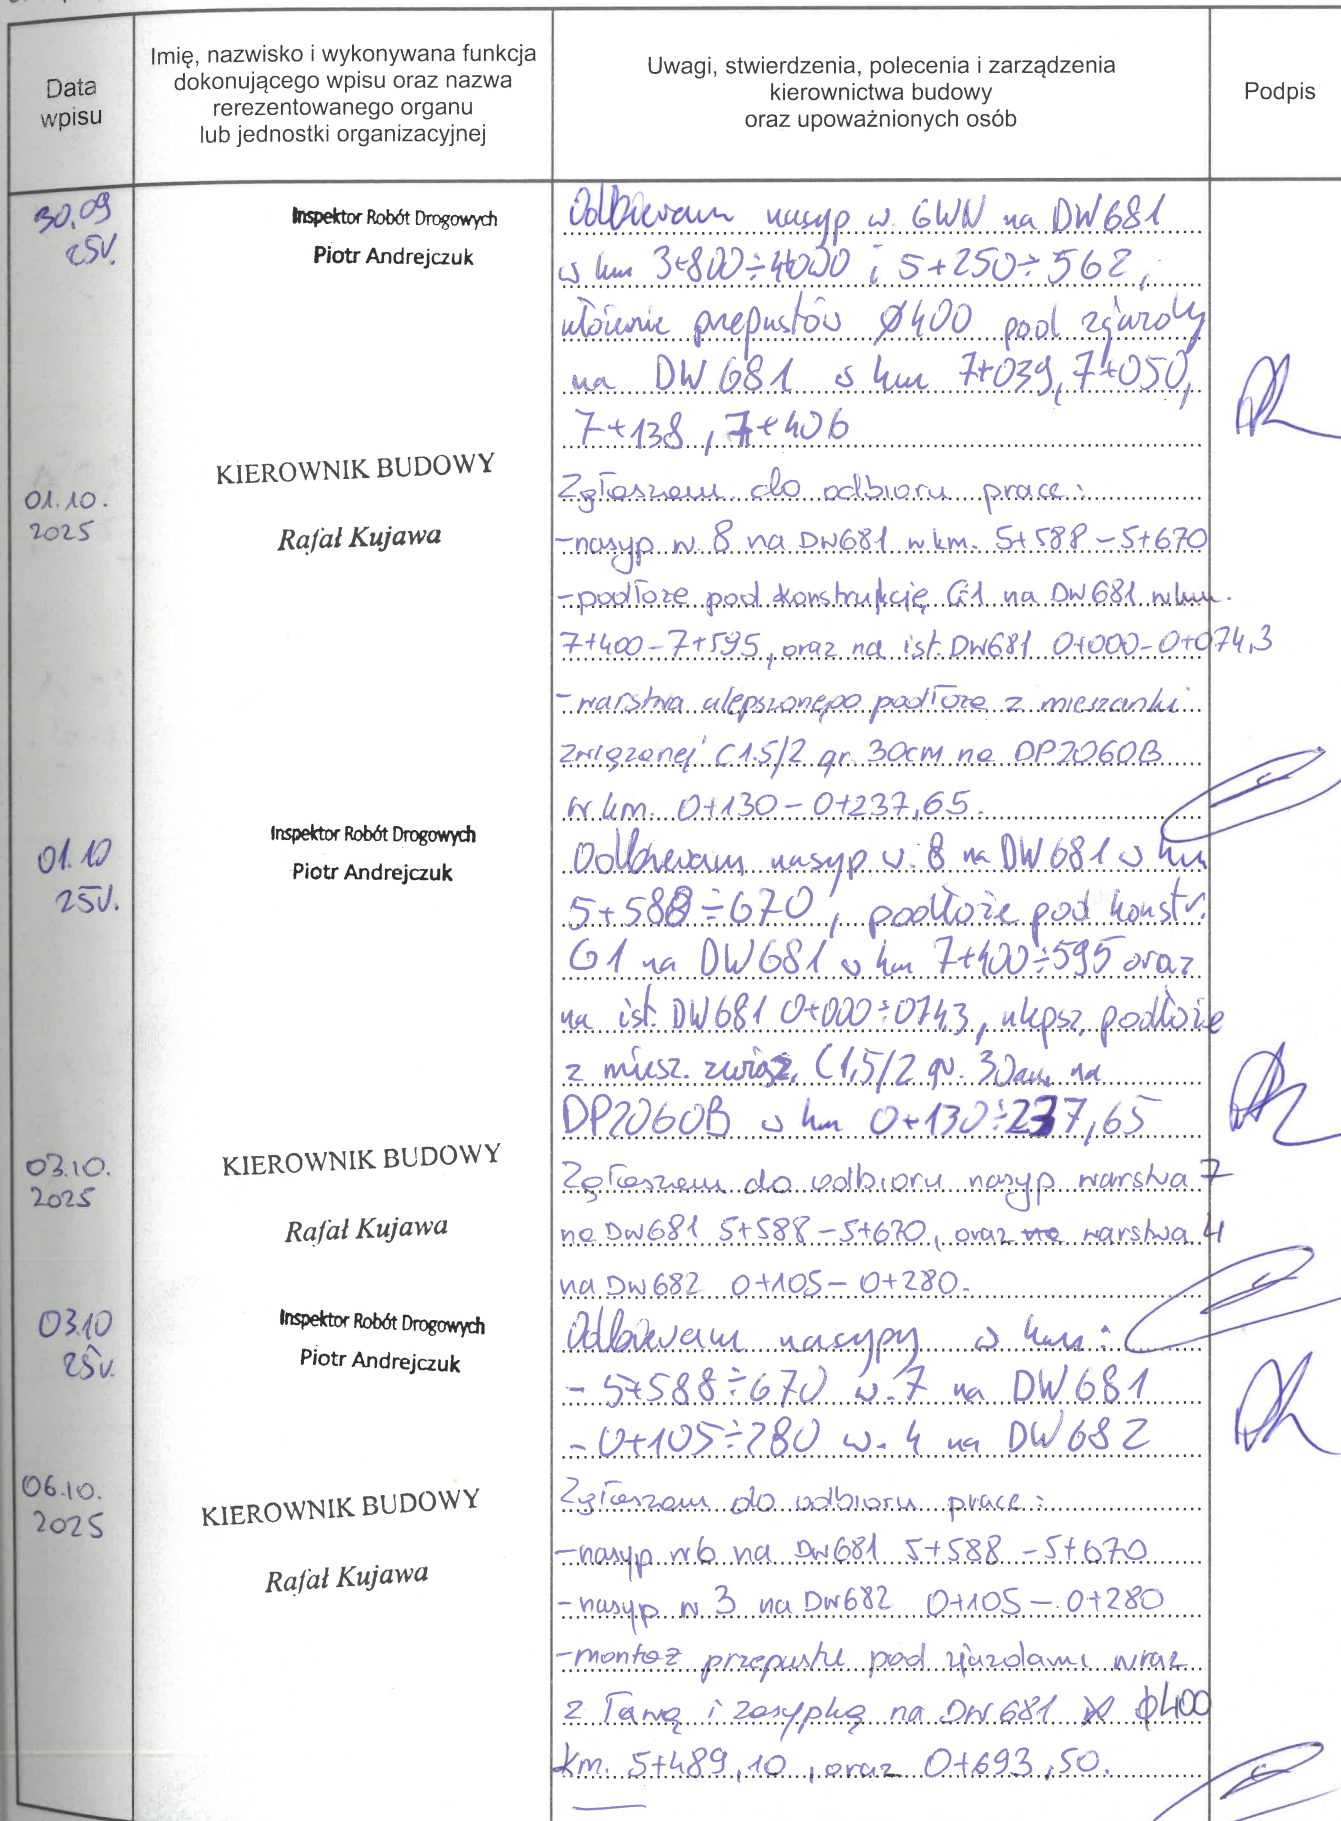 Data
wpisu
Imię, nazwisko i wykonywana funkcja
dokonującego wpisu oraz nazwa
rerezentowanego organu
lub jednostki organizacyjnej
Uwagi, stwierdzenia, polecenia i zarządzenia
kierownictwa budowy
oraz upoważnionych osób
Podpis
30.09
25r.
Inspektor Robót Drogowych
Piotr Andrejczuk
Odbieram nasyp w. GWN na DW681
w km 3+800÷4000 i 5+250÷562,
ułożenie przepustów Ø400 pod zjazdy
na DW 681 w km 7+039, 7+050,
7+138, 7+406
01.10.
2025
KIEROWNIK BUDOWY
Rafał Kujawa
Zgłaszam do odbioru prace:
-nasyp w. 8 na DW681 w km. 5+588-5+670
-podłoże pod konstrukcję G1 na DW681 w km.
7+400-7+595, oraz na ist. DW681 0+000-0+074,3
-warstwa ulepszonego podłoże z mieszanki
związanej C1.5/2 gr. 30cm na DP2060B
w km. 0+130-0+237,65.
01.10
25r.
Inspektor Robót Drogowych
Piotr Andrejczuk
Odbieram nasyp w. 8 na DW681 w km
5+588÷670, podłoże pod konstr.
G1 na DW681 w km 7+400÷595 oraz
na ist. DW681 0+000÷074,3, ulepsz. podłoże
z miesz. związ. C1,5/2 gr. 30cm na
DP2060B w km 0+130÷237,65
03.10.
2025
KIEROWNIK BUDOWY
Rafał Kujawa
Zgłaszam do odbioru nasyp warstwa 7
na DW681 5+588-5+670, oraz warstwa 4
na DW682 0+105-0+280.
03.10
25r.
Inspektor Robót Drogowych
Piotr Andrejczuk
Odbieram nasypy w km:
- 5+588÷670 w. 7 na DW681
- 0+105÷280 w. 4 na DW682
06.10.
2025
KIEROWNIK BUDOWY
Rafał Kujawa
Zgłaszam do odbioru prace:
-nasyp w6 na DW681 5+588-5+670
-nasyp w. 3 na DW682 0+105-0+280
-montaż przepustu pod zjazdami wraz
z ławą i zasypką na DW681 ϕ400
km. 5+489,10, oraz 0+693,50.